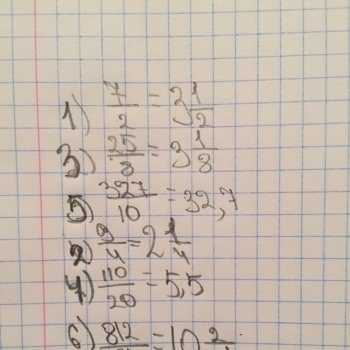 1) 7/2 = 3 1/2
3) 25/8 = 3 1/8
5) 327/10 = 32,7
2) 9/4 = 2 1/4
4) 110/20 = 5,5
6) 812/ = 10 2/